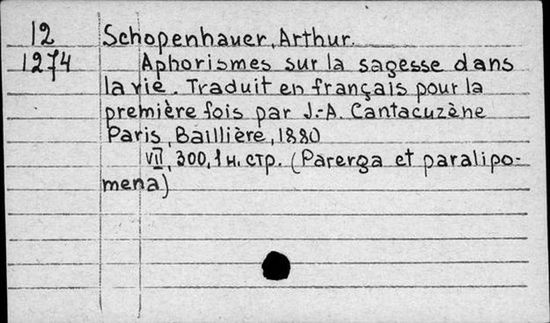 12 Schopenhauer, Arthur.
1274 Aphorismes sur la sagesse dans
la vie. Traduit en français pour la
première fois par J.-A. Cantacuzène
Paris, Baillière, 1880
VII, 300, 1 н. стр. (Parerga et paralipo-
mena)